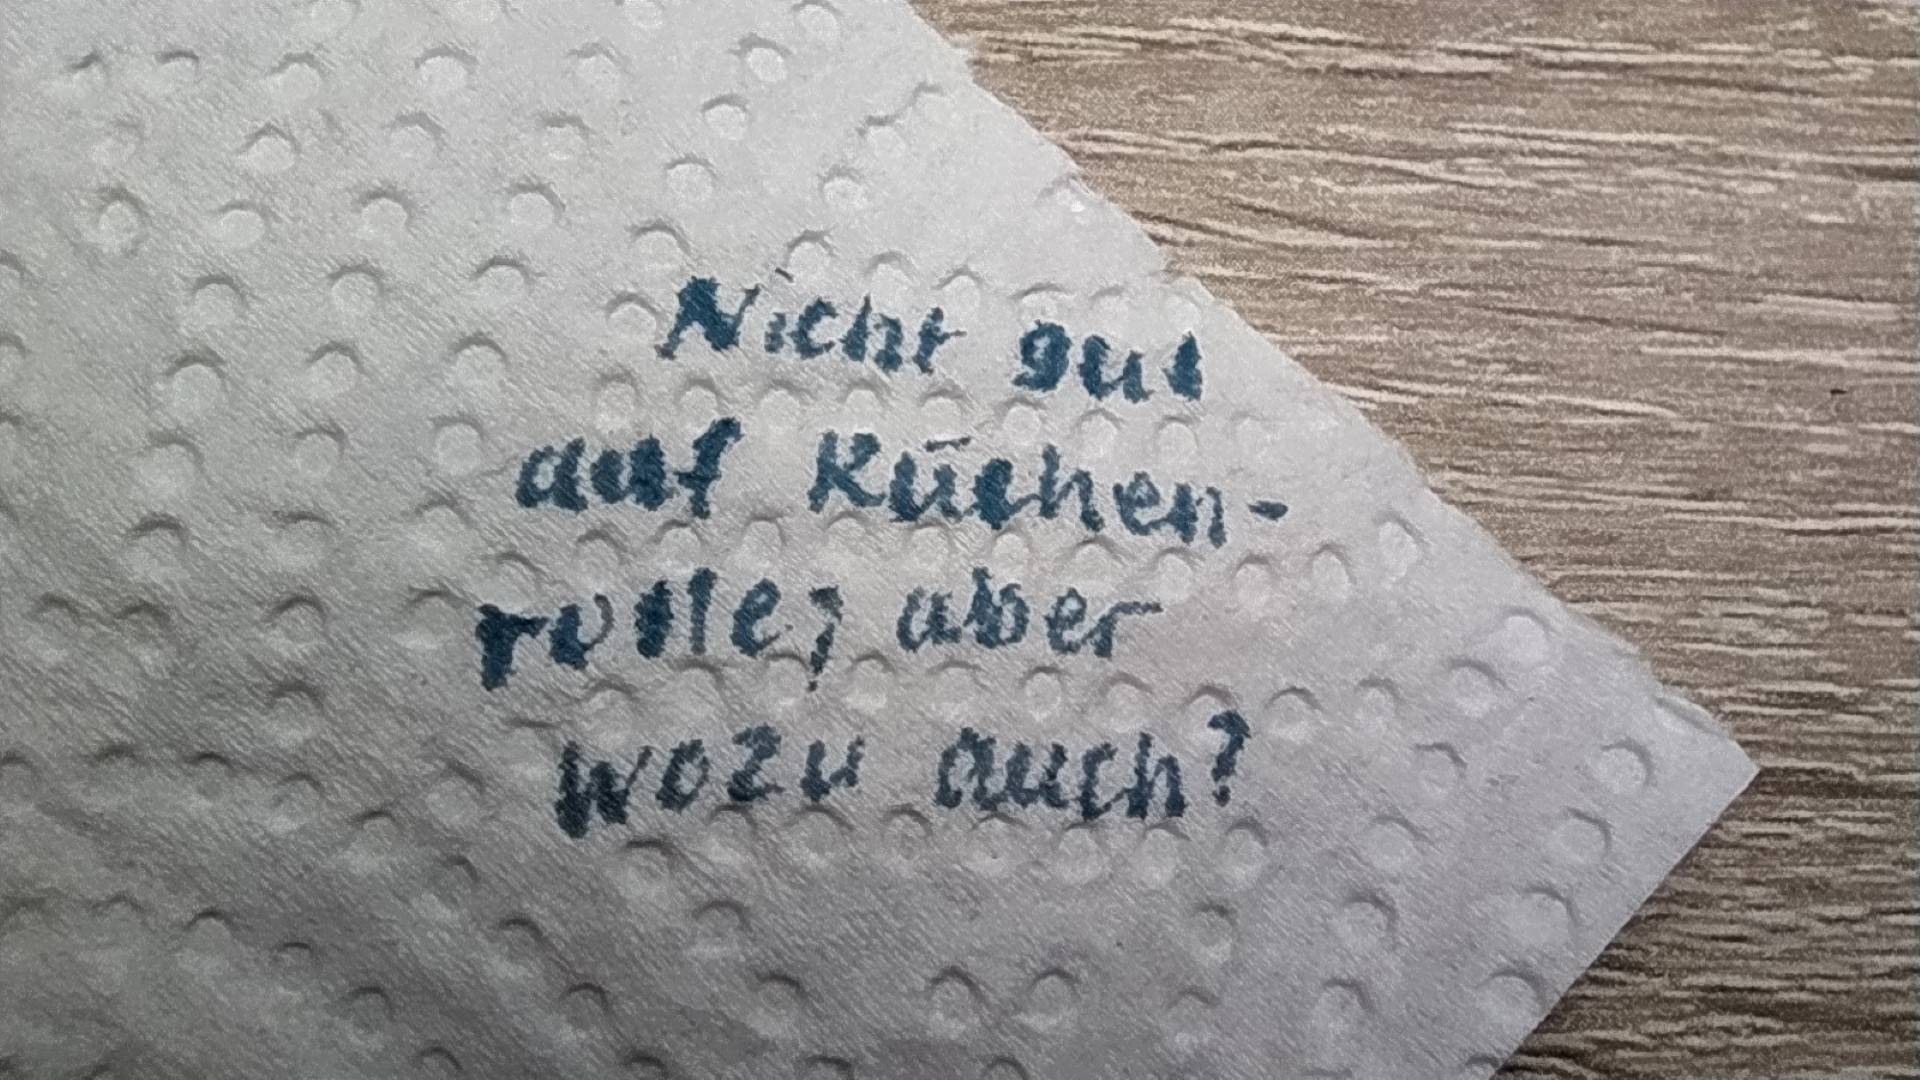 Nicht gut
auf Küchen-
rolle, aber
wozu auch?